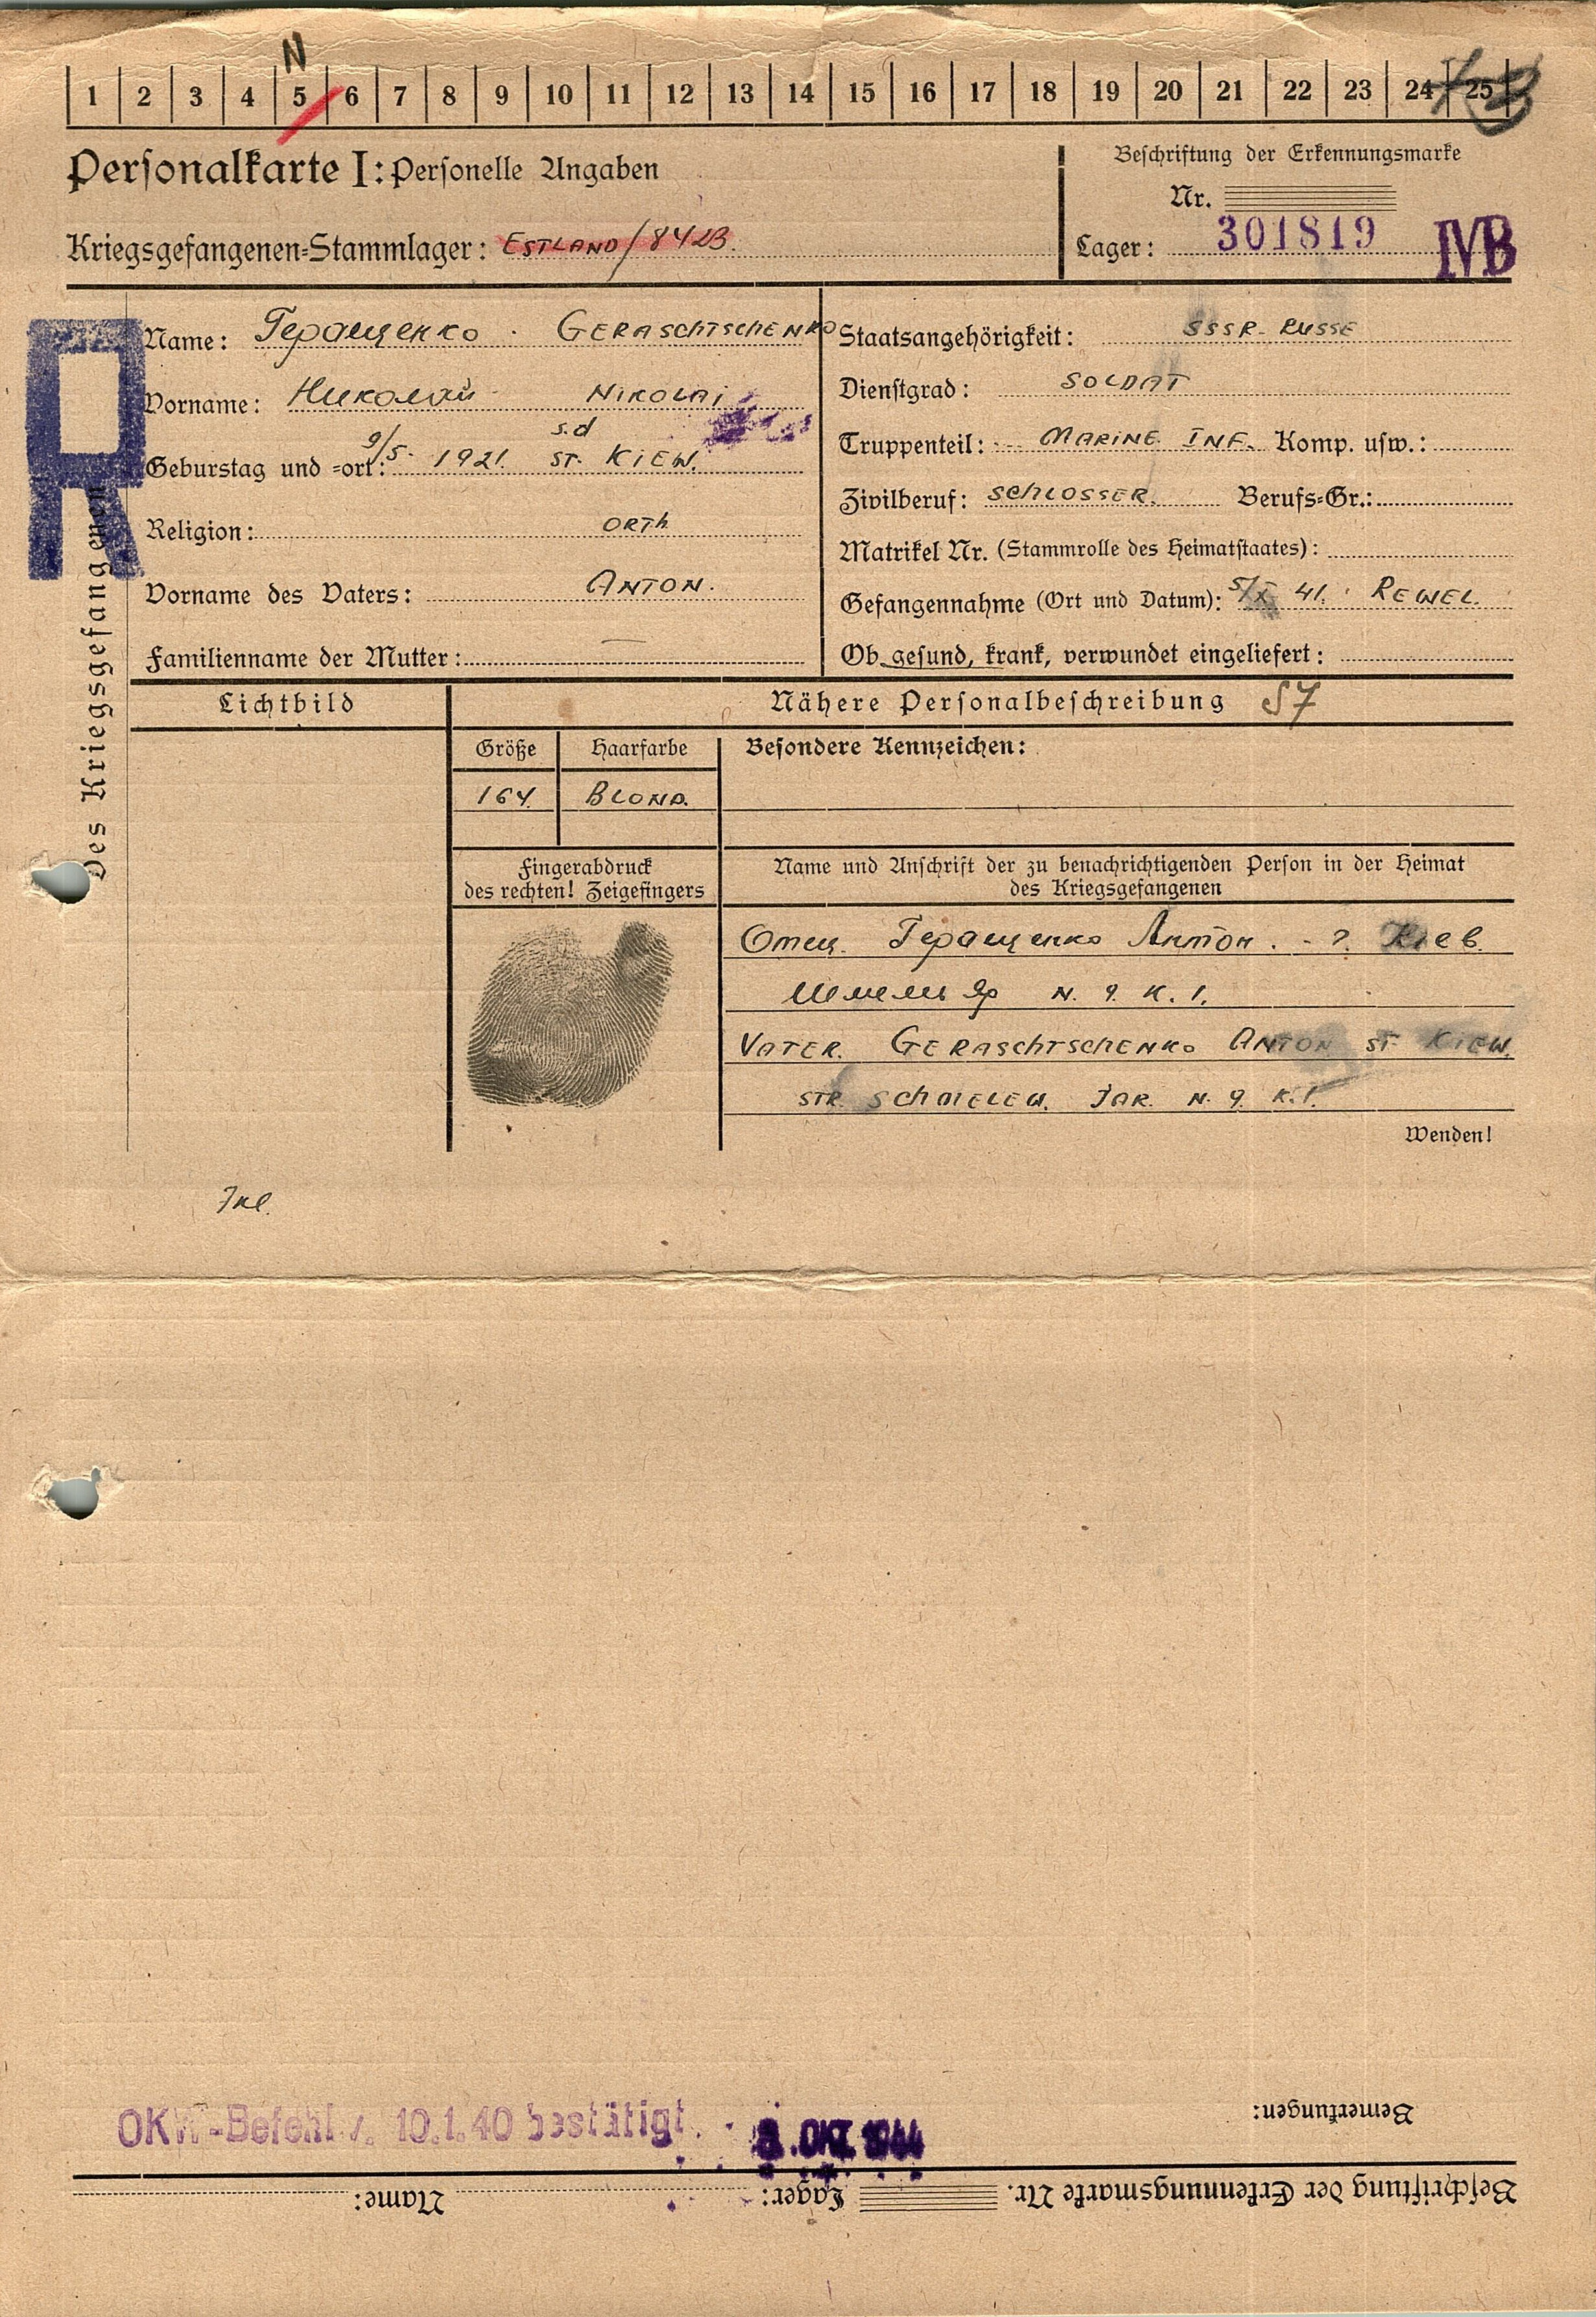 N
1 2 3 4 5 6 7 8 9 10 11 12 13 14 15 16 17 18 19 20 21 22 23 24 25
Personalkarte I: Personelle Angaben
Beschriftung der Erkennungsmarke
Nr.
Kriegsgefangenen-Stammlager: ESTLAND/842B.
Lager: 301819 IVB
R
Des Kriegsgefangenen
Name: Геращенко · GERASCHTSCHENKO
Vorname: Николай NIKOLAI
s.d
Geburstag und -ort: 9/5. 1921. ST. KIEW.
Religion: ORTH.
Vorname des Vaters: ANTON.
Familienname der Mutter: —
Staatsangehörigkeit: SSSR. RUSSE
Dienstgrad: SOLDAT
Truppenteil: MARINE. INF. Komp. usw.:
Zivilberuf: SCHLOSSER. Berufs-Gr.:
Matrikel Nr. (Stammrolle des Heimatstaates):
Gefangennahme (Ort und Datum): 41. REWEL.
Ob gesund, krank, verwundet eingeliefert:
Lichtbild
Nähere Personalbeschreibung 57
Größe
Haarfarbe
Besondere Kennzeichen:
164.
BLOND.
Fingerabdruck
des rechten! Zeigefingers
Name und Anschrift der zu benachrichtigenden Person in der Heimat
des Kriegsgefangenen
Отец. Геращенко Антон. - ?. Киев.
Яр N. 9. К. 1.
VATER. GERASCHTSCHENKO ANTON ST KIEW.
STR. SCHMELEW. JAR. N. 9. K. 1.
Wenden!
OKW-Befehl v. 10.1.40 bestätigt.
OKT. 1944
Bemerkungen:
Beschriftung der Erkennungsmarke Nr. Lager: Name: